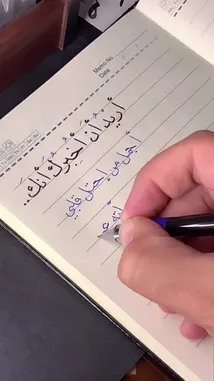 Memo No.
Date
أريدُ أنْ أُخبرُكَ أنكَ..
أجمل من إحتل قلبي